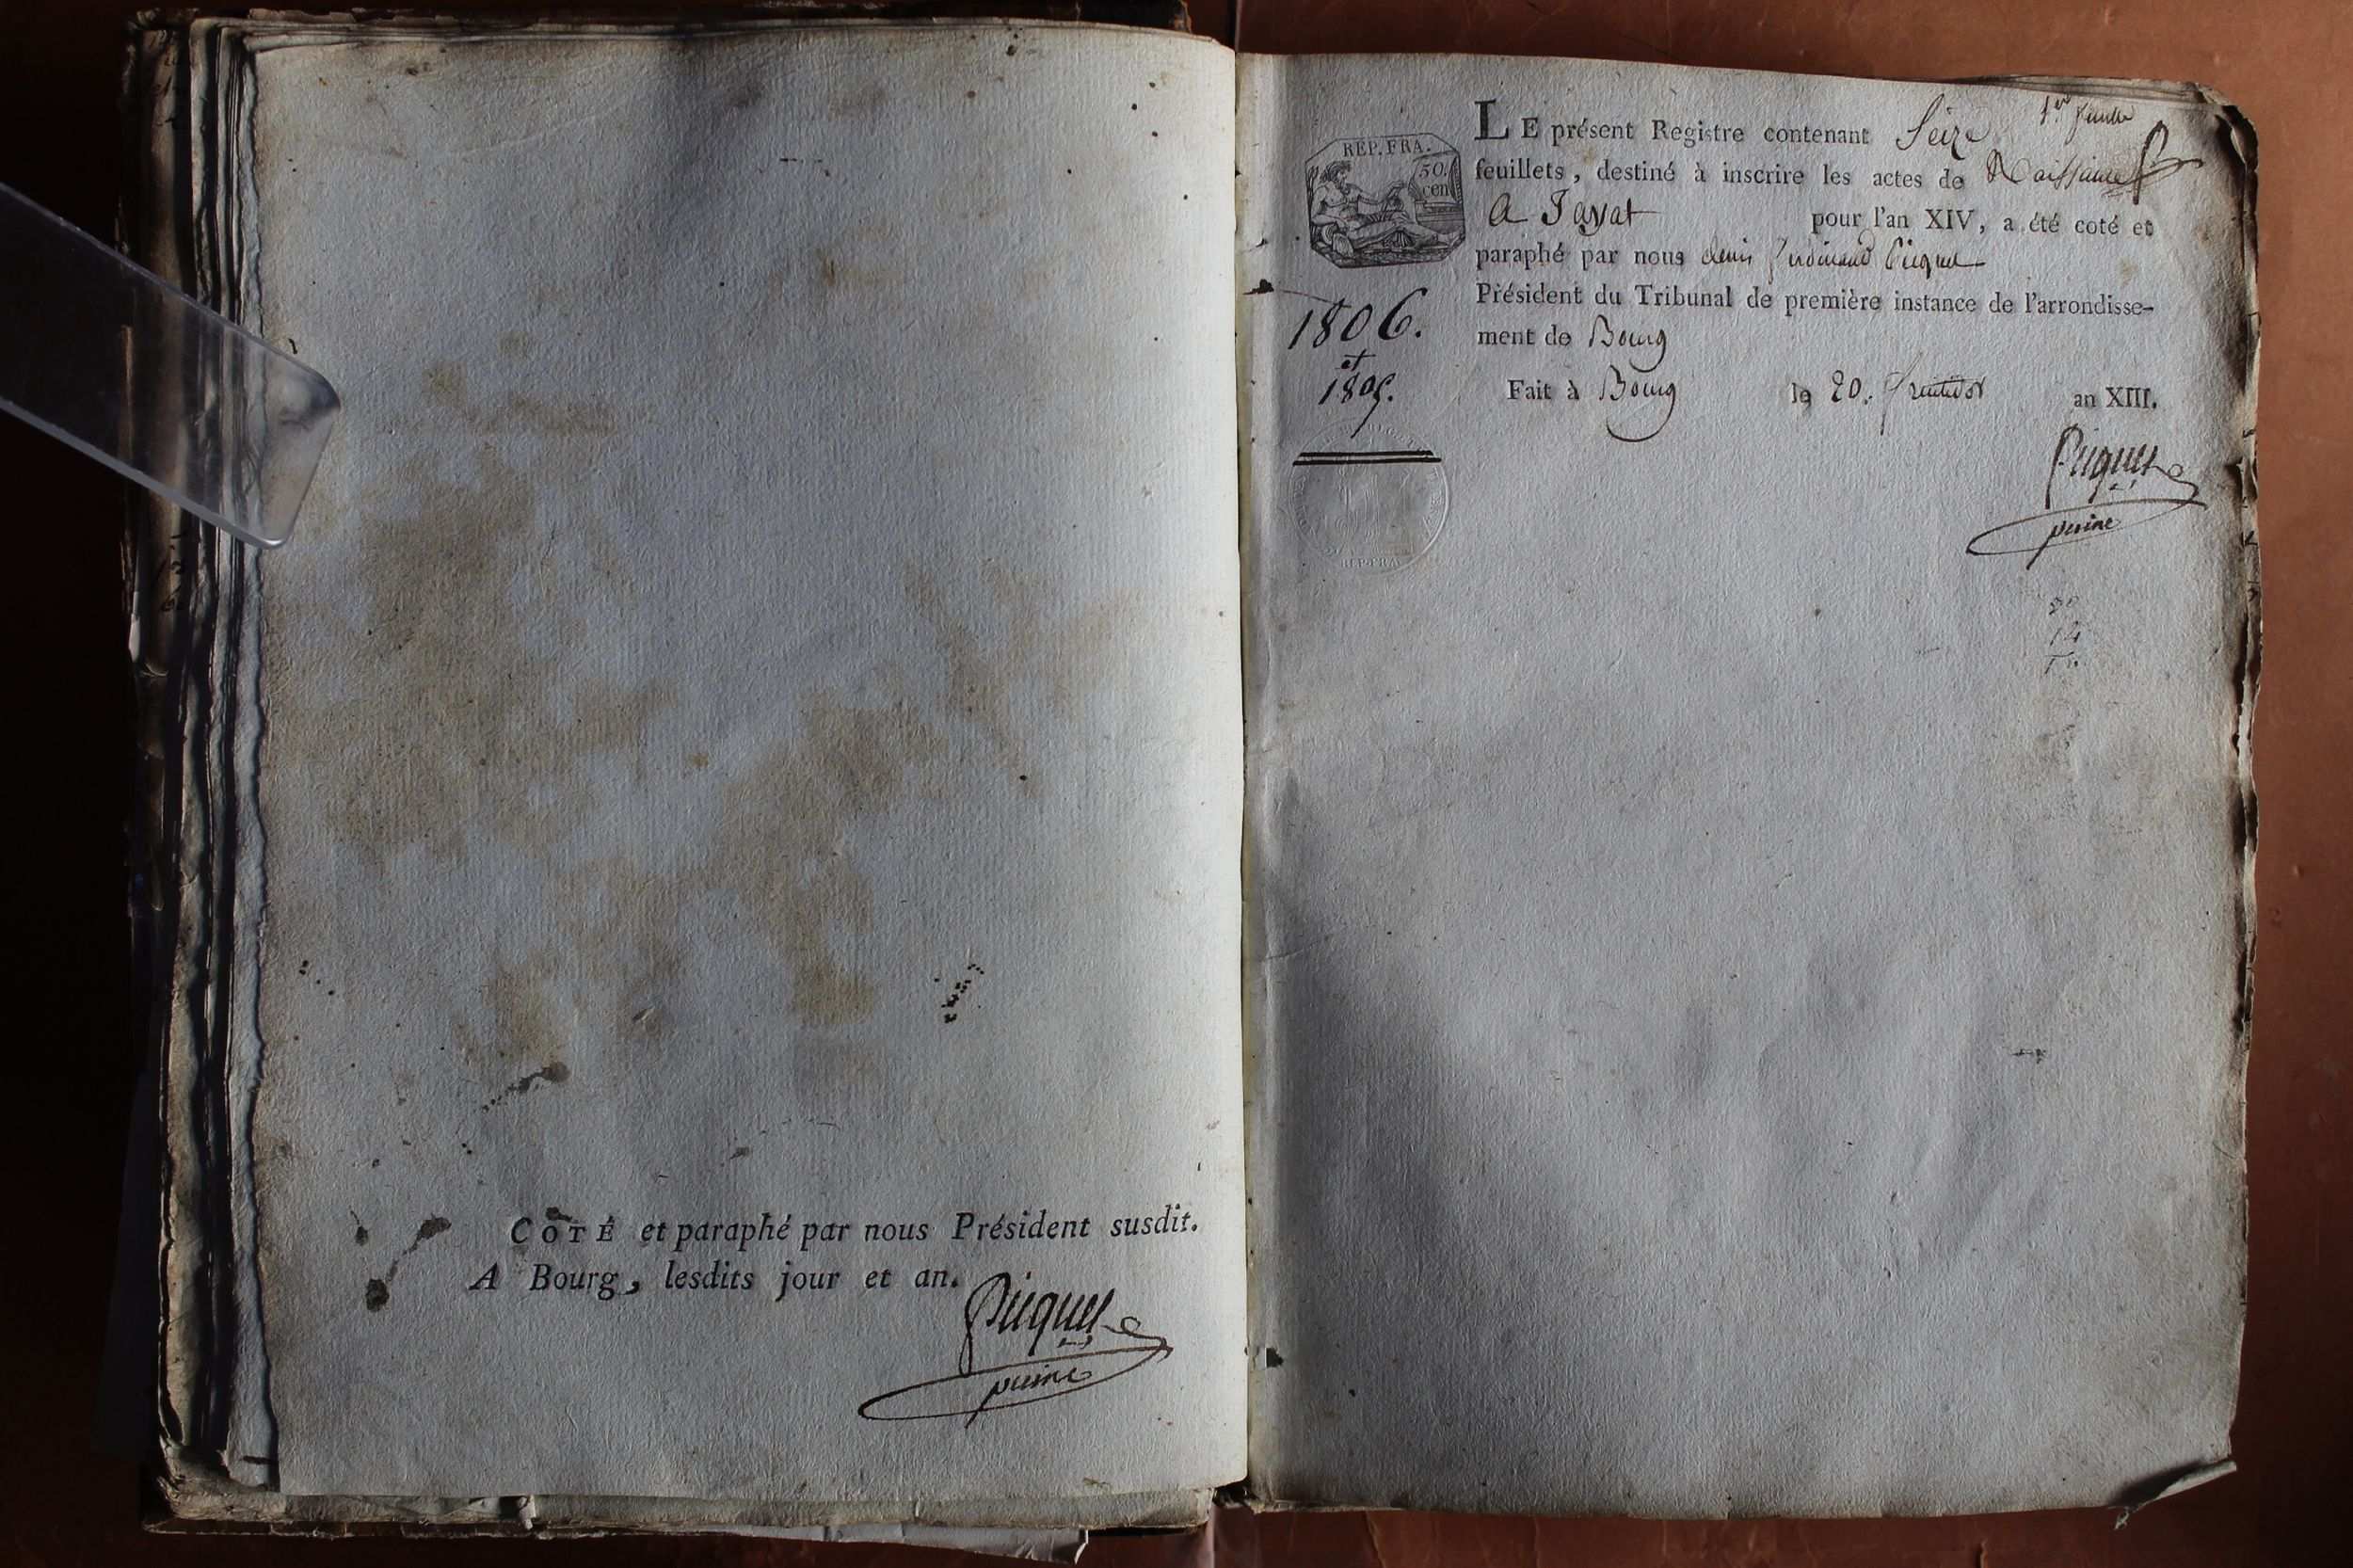 COTÉ et paraphé par nous Président susdit.
A Bourg, lesdits jour et an.
Picquet
1er feuillet
REP. FRA.
50.
cen
LE présent Registre contenant Seize
feuillets, destiné à inscrire les actes de Naissances
A Jayat pour l'an XIV, a été coté et
paraphé par nous denis ferdinand Picquet
Président du Tribunal de première instance de l'arrondisse-
ment de Bourg
1806.
et
1805.
Fait à Bourg le 20. fructidor an XIII.
Picquet
REP. FRA